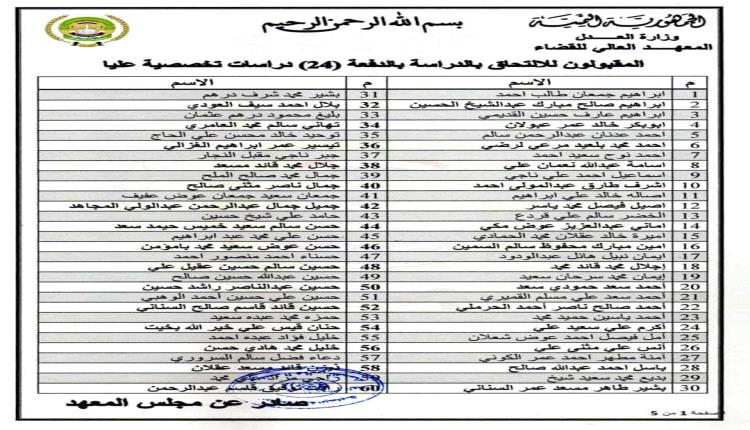 بسم الله الرحمن الرحيم
الجمهورية اليمنية
وزارة العدل
المعهد العالي للقضاء
المقبولون للالتحاق بالدراسة بالدفعة (24) دراسات تخصصية عليا
م الاسم م الاسم
1 ابراهيم جمعان طالب احمد 31 بشير محمد شرف درهم
2 ابراهيم صالح مبارك عبدالشيخ الحسين 32 بلال احمد سيف العودي
3 ابراهيم عارف حسين القديمي 33 بليغ محمود درهم عثمان
4 ابوبكر خالد عمر عبولان 34 تهاني سالم محمد العامري
5 احمد عدنان عبدالرحمن سالم 35 توحيد خالد محسن علي الحاج
6 احمد محمد بلعيد مرعي لرضي 36 تيسير عمر ابراهيم الغزالي
7 احمد نوح سعيد احمد 37 جبر ناجي مقبل النجار
8 اسامة عبدالله نعمان علي 38 جلال محمد قائد مسعد
9 اسماعيل احمد علي ناجي 39 جمال محمد صالح الملح
10 اشرف طارق عبدالمولى احمد 40 جمال ناصر مثنى صالح
11 اصاله خالد علي ابراهيم 41 جمعان سعيد جمعان عوض عفيف
12 اصيل فيصل محمد ياسر 42 جميل جمال عبدالرحمن عبدالولي المجاهد
13 الخضر سالم علي قردع 43 حامد علي شيخ حسين
14 اماني عبدالعزيز عوض مكي 44 حسن سالم سعيد خميس حيمد سعد
15 اميرة خالد عقلان محمد الحمادي 45 حسن علي محمد عبد ابراهيم
16 امين مبارك محفوظ سالم السمين 46 حسن عوض سعيد محمد بامؤمن
17 ايمان نبيل هائل عبدالودود 47 حسناء احمد منصور احمد
18 إجلال محمد قائد محمد 48 حسين سالم حسين عقيل علي
19 إيمان محمد سرحان سعيد 49 حسين عبدالله حسين صالح
20 أحمد سعد حمودي سعد 50 حسين عبدالناصر راشد حسين
21 أحمد سعد علي مسلم القميري 51 حسين علي حسين أحمد الوهبي
22 أحمد صالح ناصر أحمد الحرملي 52 حسين قائد قاسم صالح السناني
23 أحمد ياسين حميد محمد 53 حمزه محمد عبده سعيد
24 أكرم علي سعيد علي 54 حنان قيس علي خير الله بخيت
25 أمل فيصل احمد عوض شعلان 55 خليل فؤاد عبده احمد
26 أنس علي مثنى علي 56 خليل محمد هادي حسن
27 آمنة مطهر احمد عمر الكوني 57 دعاء فضل سالم السروري
28 باسل احمد عبدالله صالح 58 قائد مسعد عقلان
29 بديع محمد سعيد شيخ
30 بشير طاهر مسعد عمر السناني 60 قاسم عبدالرحمن
صادر عن مجلس المعهد
الصفحة 1 من 5